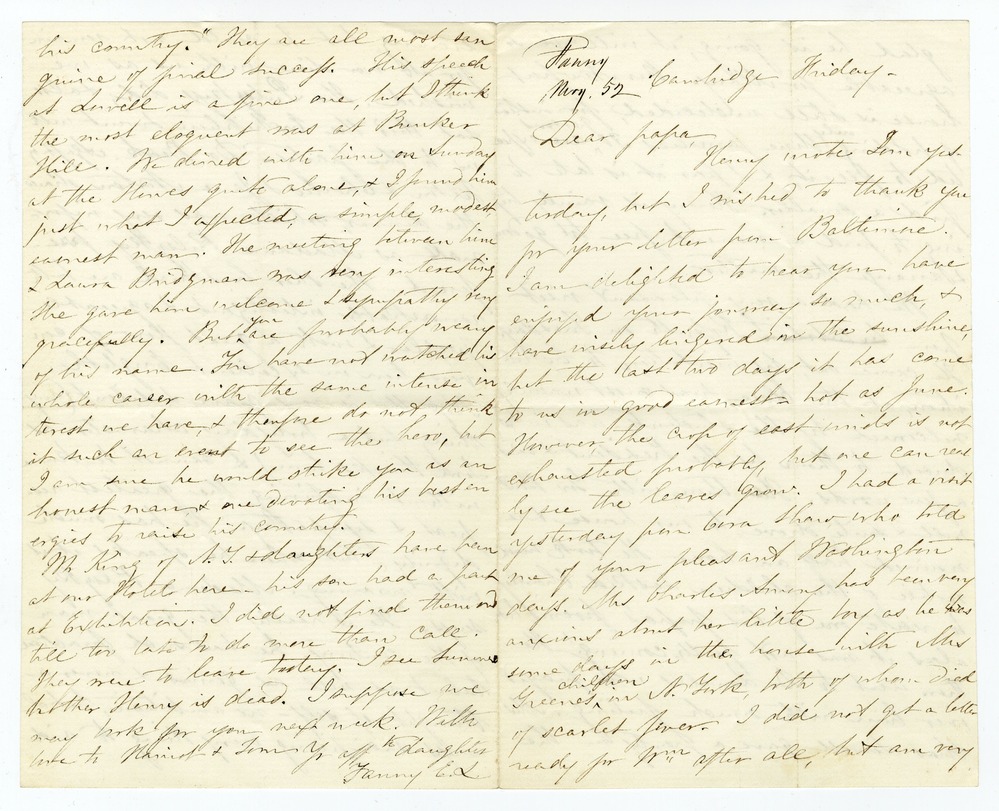 Fanny
May. 52
Cambridge Friday -
Dear papa,
Henry wrote Tom yes-
terday, but I wished to thank you
for your letter from Baltimore.
I am delighted to hear you have
enjoyed your journey so much, &
have wisely lingered in the sunshine,
but the last two days it has come
to us in good earnest - hot as June.
However the crop of east winds is not
exhausted probably but one can real
ly see the leaves grow. I had a visit
yesterday from Cora Shaw who told
me of your pleasant Washington
days. Mrs Charles Amory has been very
anxious about her little boy as he was
some days in the house with Mrs
Greene's children in N. York, both of whom died
of scarlet fever. I did not get a letter
ready for Wm after all, but am very
his country." They are all most san
guine of final success. His speech
at Lowell is a fine one, but I think
the most eloquent was at Bunker
Hill. We dined with him on Sunday
at the Howes quite alone, & I found him
just what I expected, a simple, modest
earnest man. The meeting between him
& Laura Bridgman was very interesting
She gave him welcome & sympathy very
gracefully. But you are probably weary
of his name. You have not watched his
whole career with the same intense in
terest we have, & therefore do not think
it such an event to see the hero, but
I am sure he would strike you as an
honest man & one devoting his best en
ergies to raise his country.
Mr King of N.Y. & daughters have been
at our Hotel here - his son had a part
at Exhibition. I did not find them out
till too late to do more than call.
They were to leave today. I see Sumner's
brother Henry is dead. I suppose we
may look for you next week. With
love to Harriot & Tom Yr affte daughter
Fanny E. L.